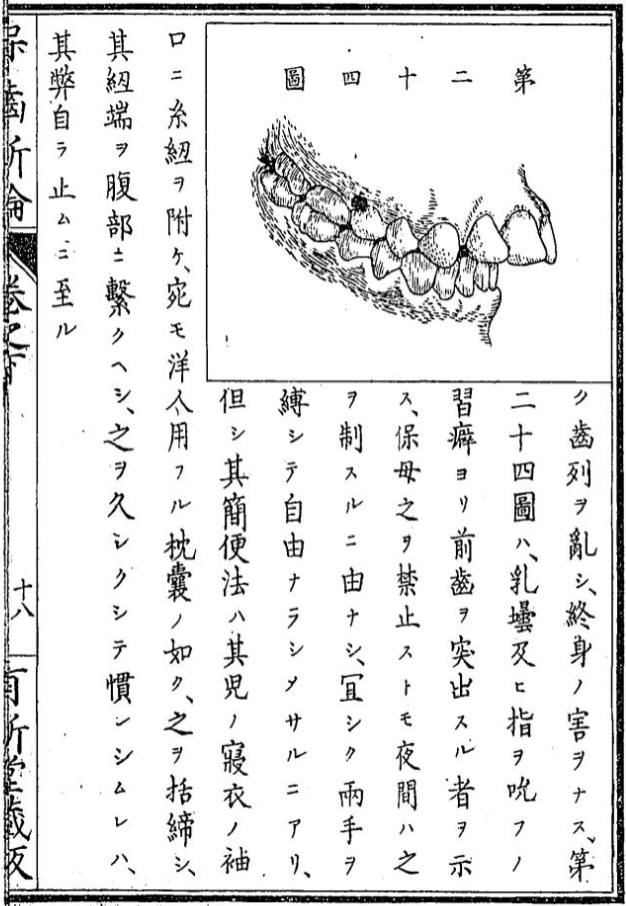 ク齒列ヲ亂シ、終身ノ害ヲナス、第
二十四圖ハ、乳壜及ヒ指ヲ吮フノ
習癖ヨリ前齒ヲ突出スル者ヲ示
ス、保母之ヲ禁止ストモ夜間ハ之
ヲ制スルニ由ナシ、冝シク兩手ヲ
縛シテ自由ナラシメサルニアリ、
但シ其簡便法ハ其児ノ寢衣ノ袖
第二十四圖
口ニ糸紐ヲ附ケ、宛モ洋人用フル枕嚢ノ如ク、之ヲ括締シ、
其紐端ヲ腹部ニ繋クヘシ、之ヲ久シクシテ慣レシムレハ、
其弊自ラ止ムニ至ル
齒新論
卷之下
十八
新堂藏版